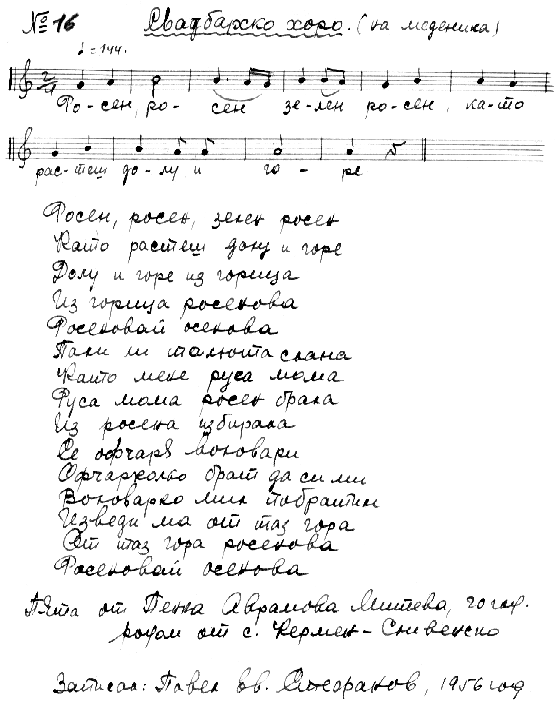 № 16 Сватбарско хоро. (на меденика)
♩ = 144.
Росен, росен зелен росен, като
растеш долу и горе
Росен, росен, зелен росен
Като растеш долу и горе
Долу и горе из горица
Из горица росенова
Росеновай осенова
Пали ли та люта слана
Като мене руса мома
Руса мома росен брала
Из росена избирала
Се офчаря воловари
Офчаркольо брат да си ми
Воловарко мил побратим
Изведи ма от таз гора
От таз гора росенова
Росеновай осенова
Пята от Пенка Аврамова Митева, 70 год.
родом от с. Кермен - Сливенско
Записал: Павел Ив. Стефанов, 1956 год